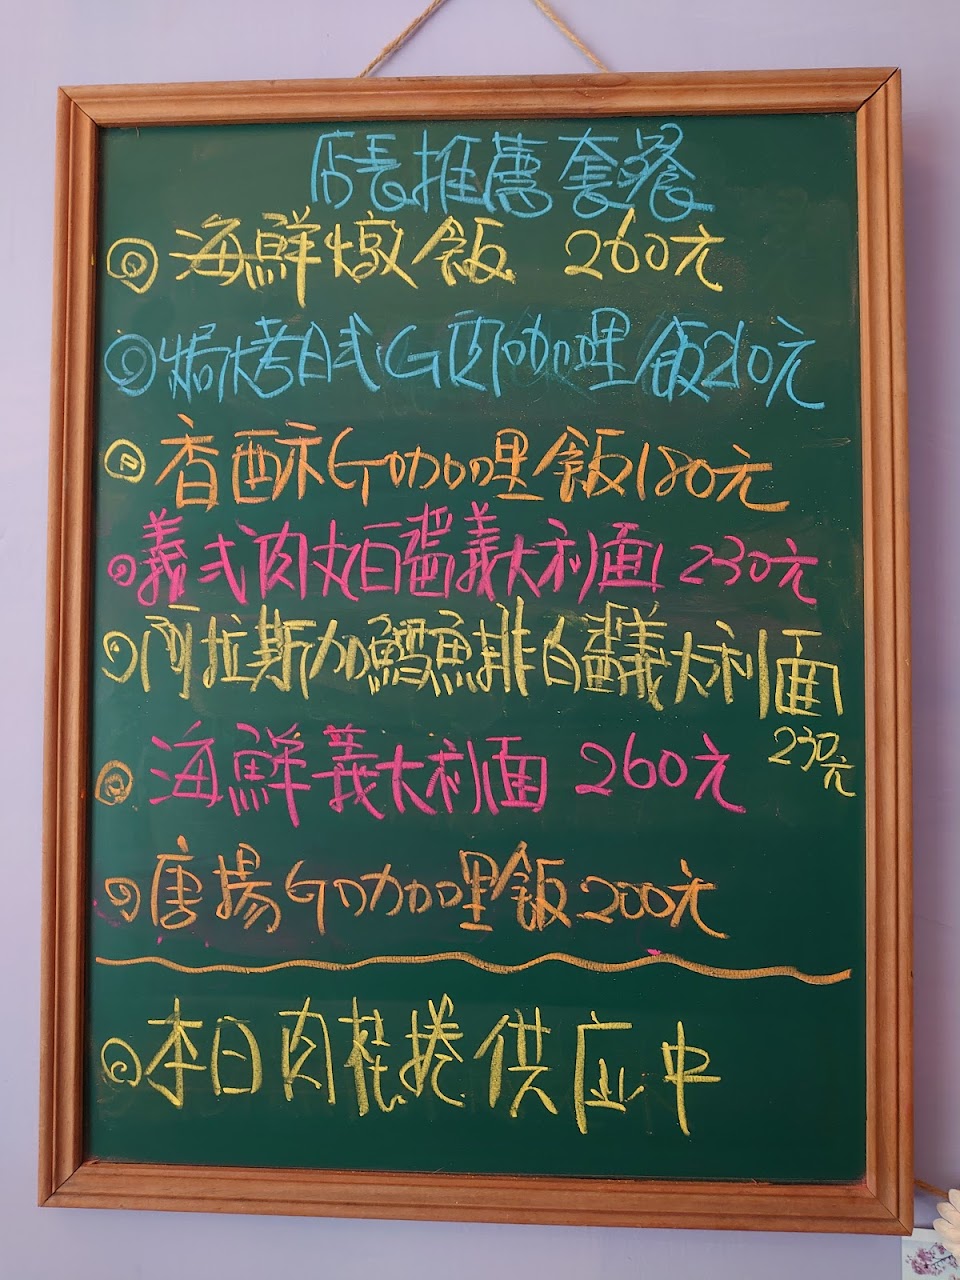 店長推薦套餐
海鮮燉飯 260元
焗烤日式G肉咖哩飯210元
香酥G咖哩飯180元
義式肉丸白醬義大利面 230元
阿拉斯加鱈魚排白醬義大利面
230元
海鮮義大利面 260元
唐揚G咖哩飯200元
本日肉桂捲供应中